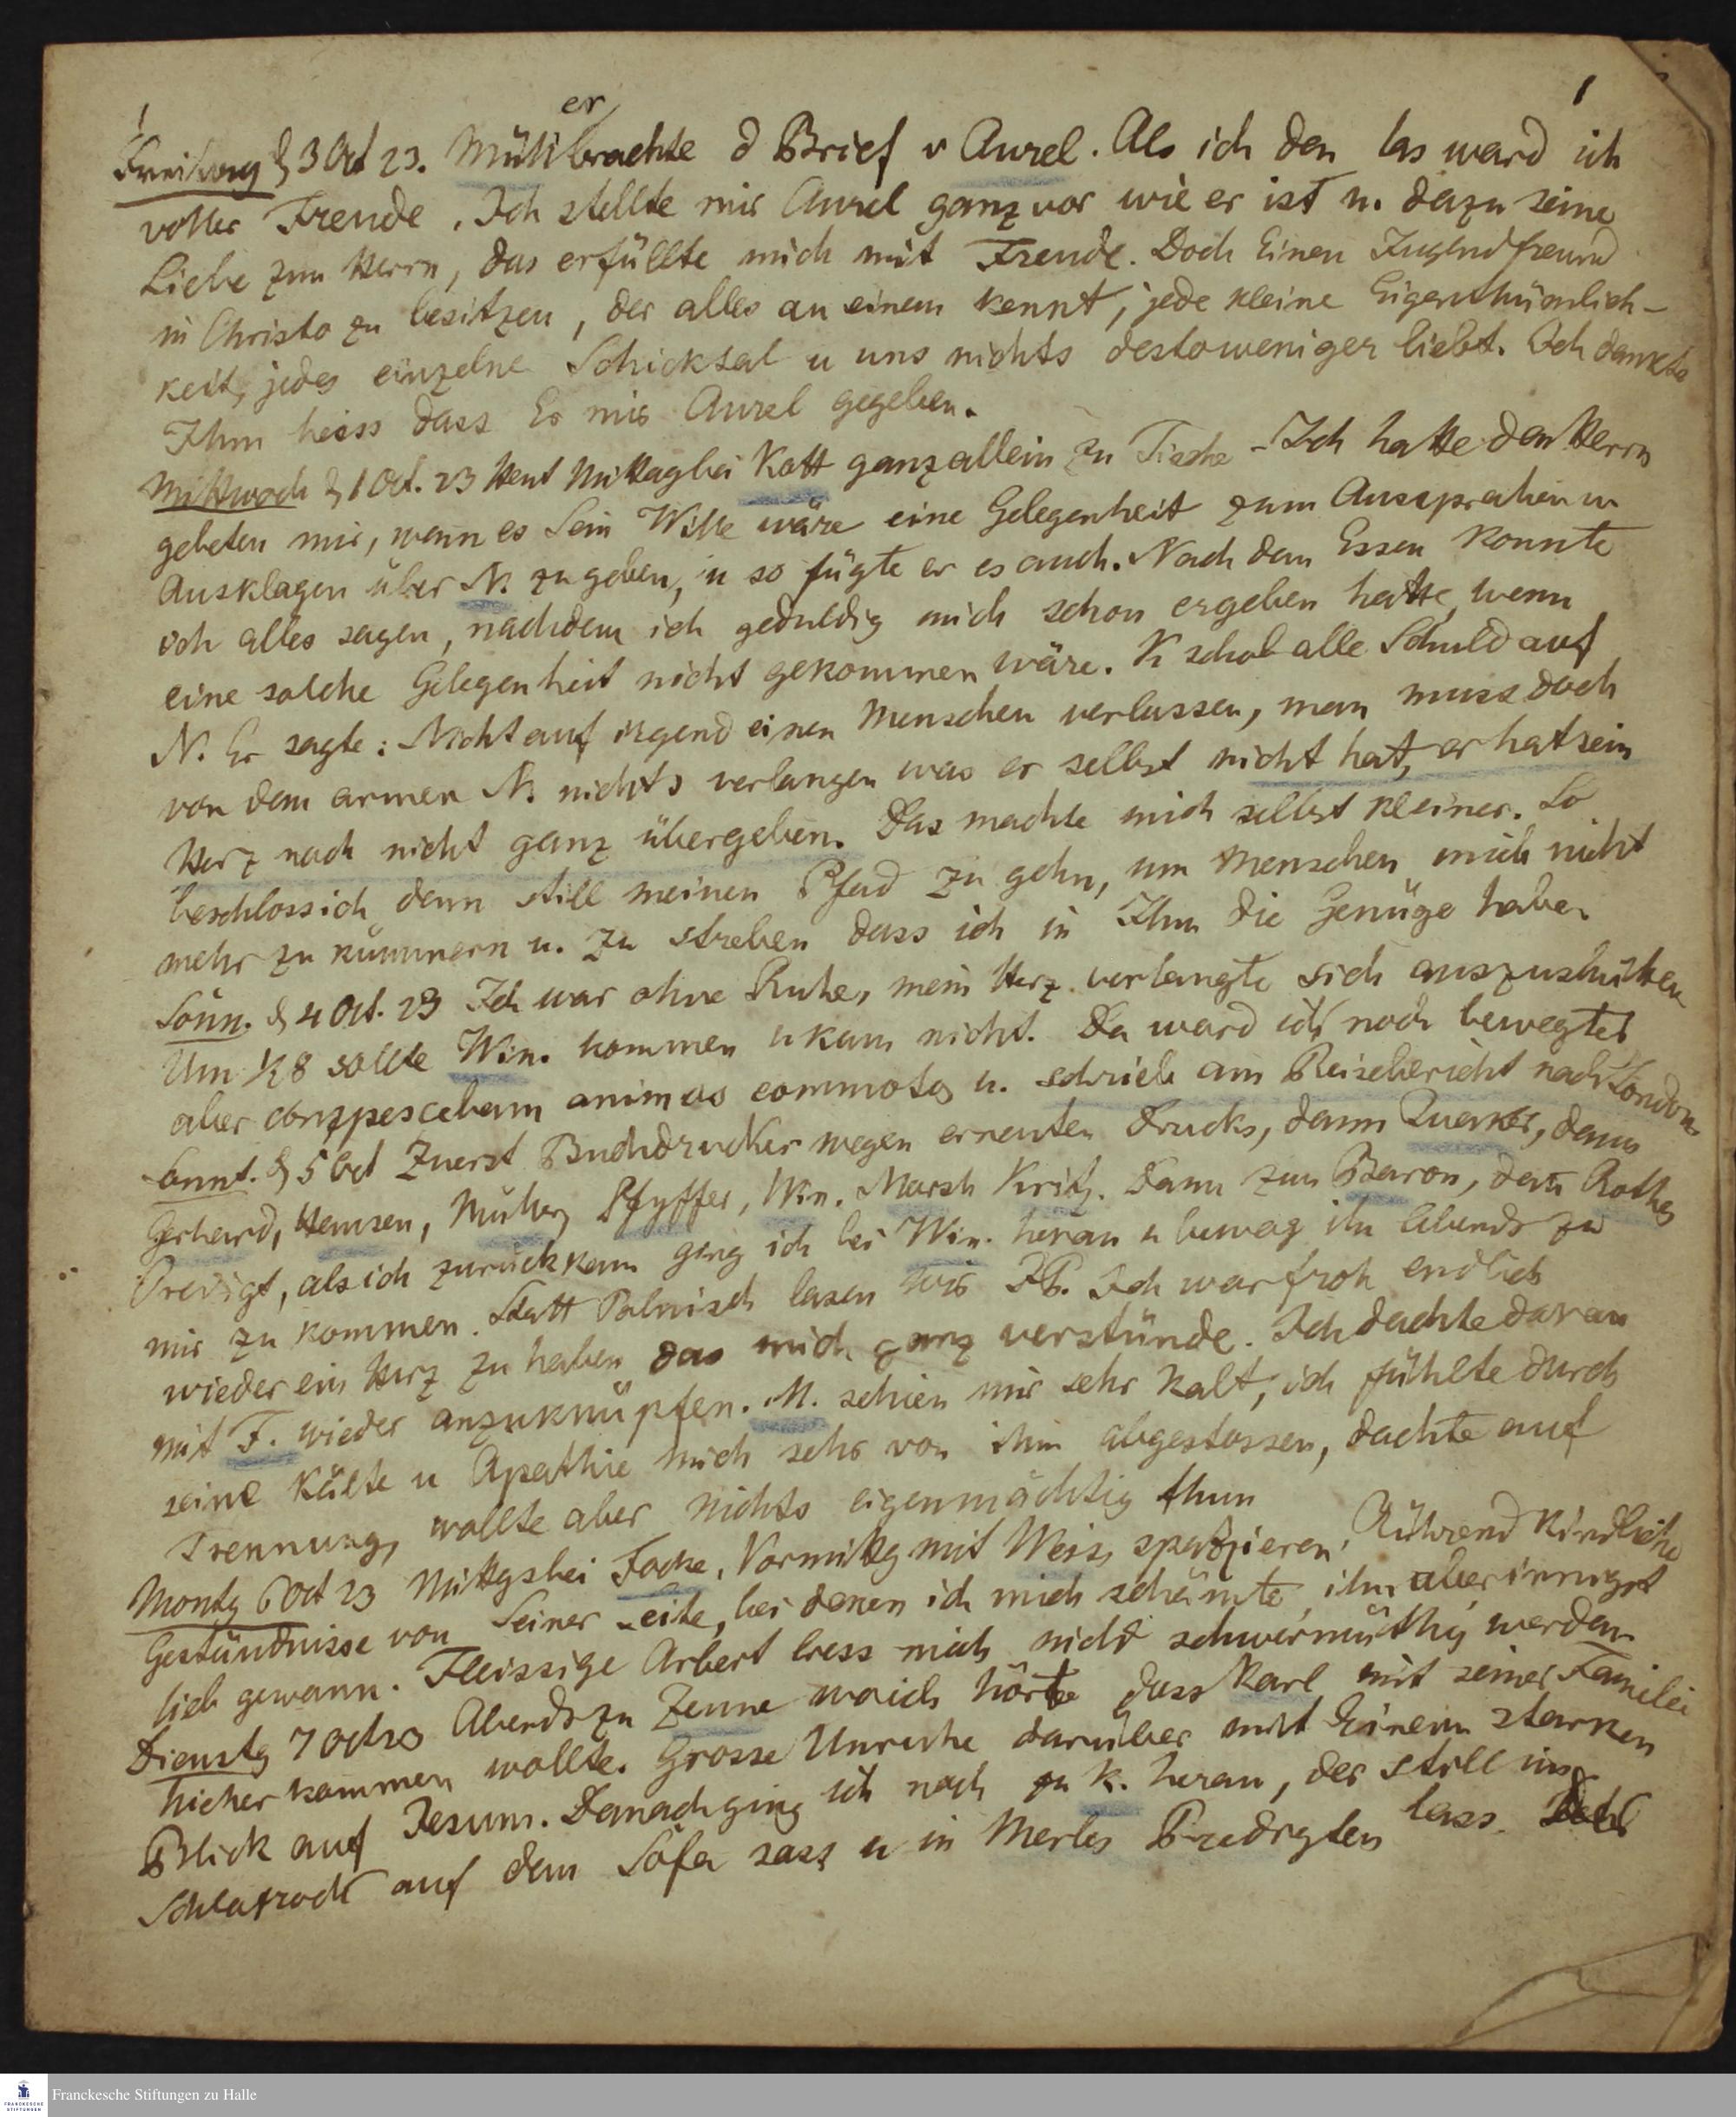 1 1
er
Freitag d 3 Oct 23. Müll brachte d Brief v Aurel. Als ich den las ward ich
voller Freude. Ich stellte mir Aurel ganz vor wie er ist u. dazu seine
Liebe zum Herrn, das erfüllte mich mit Freude. Doch Einen Jugendfreund
in Christo zu besitzen, der alles an einem kennt, jede kleine Eigenthümlich-
keit, jedes einzelne Schicksal u uns nichts destoweniger liebt. Ich dankte
Ihm heiss dass Er mir Aurel gegeben.
Mittwoch d 1 Oct. 23 Heut Mittag bei Kott ganz allein zu Tische - Ich hatte den Herrn
gebeten mir, wenn es Sein Wille wäre eine Gelegenheit zum Aussprechen u
Ausklagen über N. zu geben, u so fügte er es auch. Nach dem Essen konnte
ich alles sagen, nachdem ich geduldig mich schon ergeben hatte, wenn
eine solche Gelegenheit nicht gekommen wäre. K schob alle Schuld auf
N. Er sagte: Nicht auf irgend einen Menschen verlassen, man muss doch
von dem armen N. nichts verlangen was er selbst nicht hat, er hat sein
Herz noch nicht ganz übergeben. Das machte mich selbst kleiner. So
beschloss ich denn still meinen Pfad zu gehn, um Menschen mich nicht
mehr zu kümmern u. zu streben dass ich in Ihm die Genüge habe.
Sonn. d 4 Oct. 23 Ich war ohne Ruhe, mein Herz verlangte sich auszuschütten
Um ½8 sollte Win. kommen u kam nicht. Da ward ich noch bewegter
aber compescebam animos commotos u. schrieb am Reisebericht nach London
Sonnt. d 5 Oct Zuerst Buchdrucker wegen erneuten Drucks, dann Quaker, dann
Gerhard, Hemsen, Müller, Pfyffer, Win. Marsh Kritz. Dann zum Baron, dann Rothes
Predigt, als ich zurückkam ging ich bei Win. heran u bewog ihn Abends zu
mir zu kommen. Statt Polnisch lasen wir JP. Ich war froh endlich
wieder ein Herz zu haben das mich ganz verstünde. Ich dachte daran
mit F. wieder anzuknüpfen. M. schien mir sehr kalt, ich fühlte durch
seine Kälte u Apathie mich sehr von ihm abgestossen, dachte auf
Trennung, wollte aber nichts eigenmächtig thun
Montg 6 Oct 23 Mittgs bei Focke, Vormittg mit Weiss spatzieren. Rührend kindliche
Geständnisse von Seiner Seite, bei denen ich mich schämte, ihn aber innigst
lieb gewann. Fleissige Arbeit liess mich nicht schwermüthig werden.
Dienstg 7 Oct 23 Abends zu Zeune wo ich hörte dass Karl mit seiner Familei
hieher kommen wollte. Grosse Unruhe darüber mit Einem starken
Blick auf Jesum. Danach ging ich noch zu K. heran, der still im
Schlafrock auf dem Sofa sass u in Merles Predigten lass.
Franckesche Stiftungen zu Halle